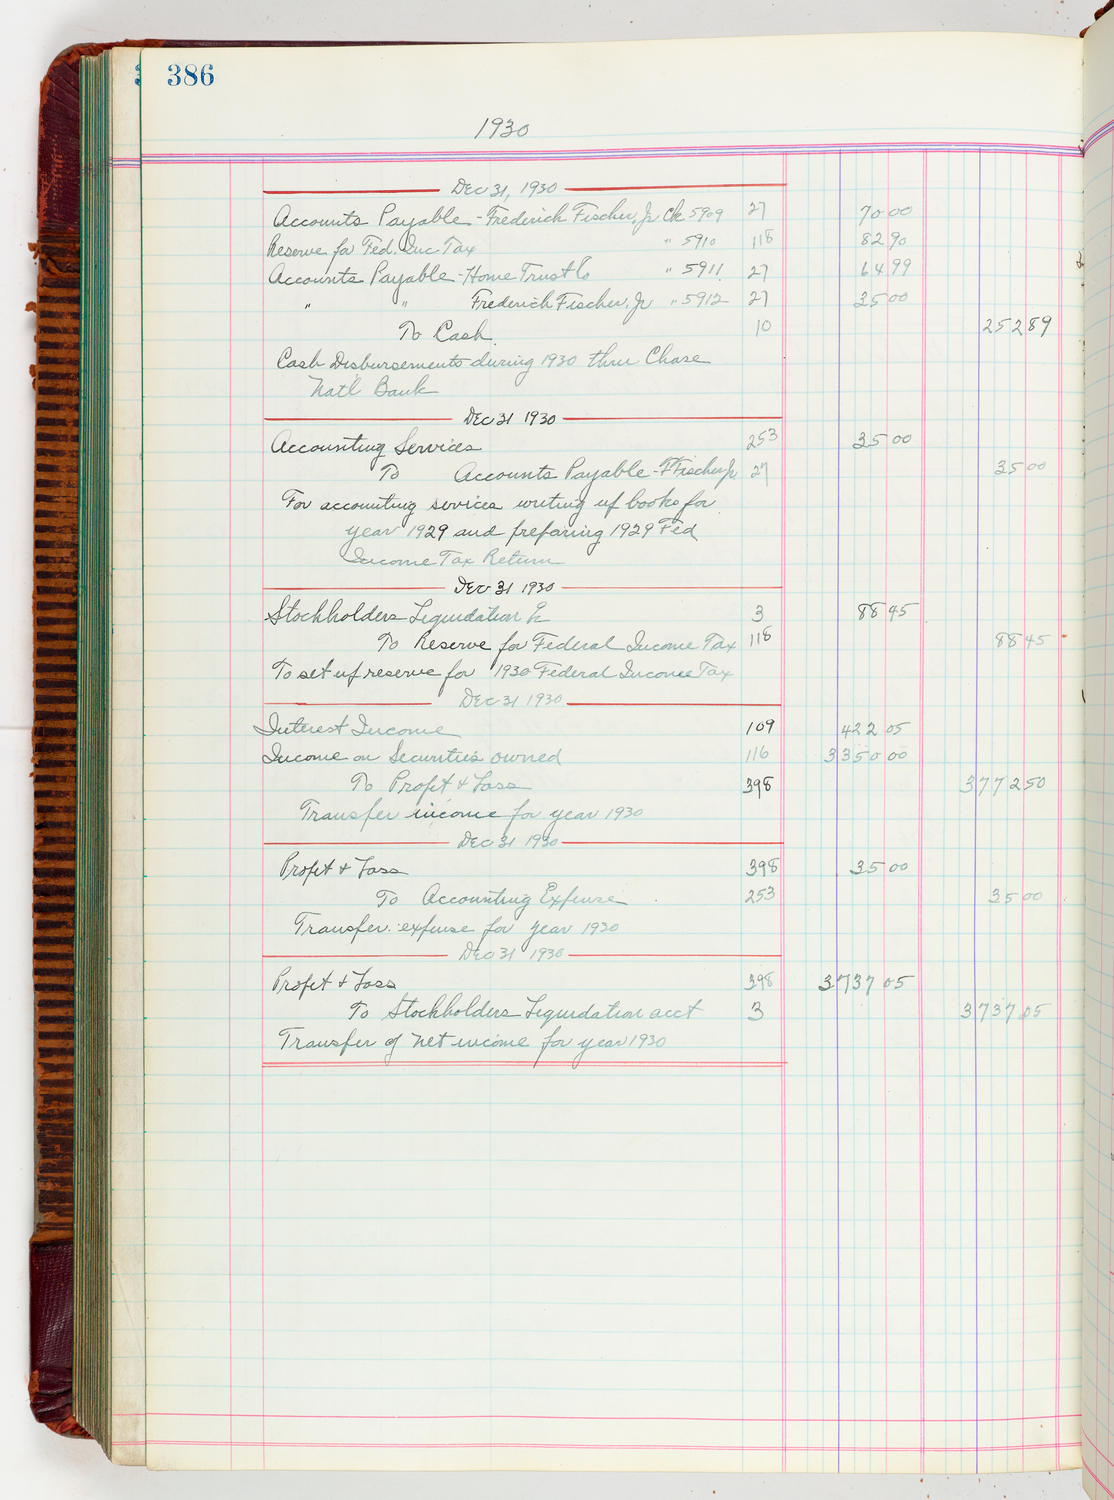 386
1930
Dec 31, 1930
Accounts Payable - Frederick Fischer, Jr Ck 5909 27 70 00
Reserve for Fed. Inc Tax " 5910 118 82 90
Accounts Payable - Home Trust Co " 5911 27 64 99
" " Frederick Fischer, Jr " 5912 27 35 00
To Cash 10 252 89
Cash Disbursements during 1930 thru Chase
Natl Bank
Dec 31 1930
Accounting Services 253 35 00
To Accounts Payable - F Fischer Jr 27 35 00
For accounting services writing up books for
year 1929 and preparing 1929 Fed
Income Tax Return
Dec 31 1930
Stockholders Liquidation 3 88 45
To Reserve for Federal Income Tax 118 88 45
To set up reserve for 1930 Federal Income Tax
Dec 31 1930
Interest Income 109 422 05
Income on Securities owned 116 3350 00
To Profit & Loss 398 3772 50
Transfer income for year 1930
Dec 31 1930
Profit & Loss 398 35 00
To Accounting Expense 253 35 00
Transfer expense for year 1930
Dec 31 1930
Profit & Loss 398 3737 05
To Stockholders Liquidation acct 3 3737 05
Transfer of net income for year 1930